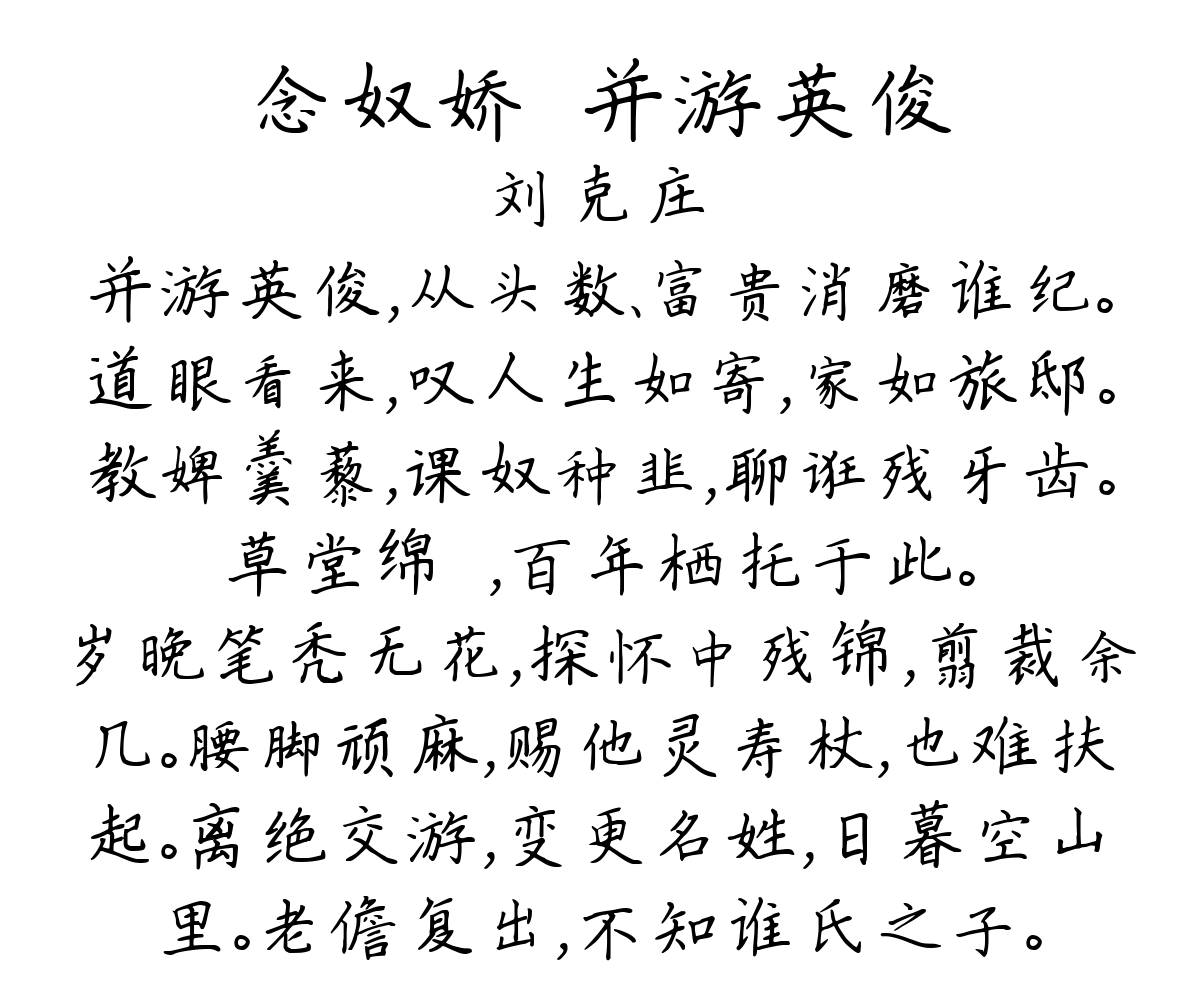 念奴娇 并游英俊
刘克庄
并游英俊,从头数、富贵消磨谁纪。
道眼看来,叹人生如寄,家如旅邸。
教婢羹藜,课奴种韭,聊诳残牙齿。
草堂绵 ,百年栖托于此。
岁晚笔秃无花,探怀中残锦,剪裁余
几。腰脚顽麻,赐他灵寿杖,也难扶
起。离绝交游,变更名姓,日暮空山
里。老儋复出,不知谁氏之子。